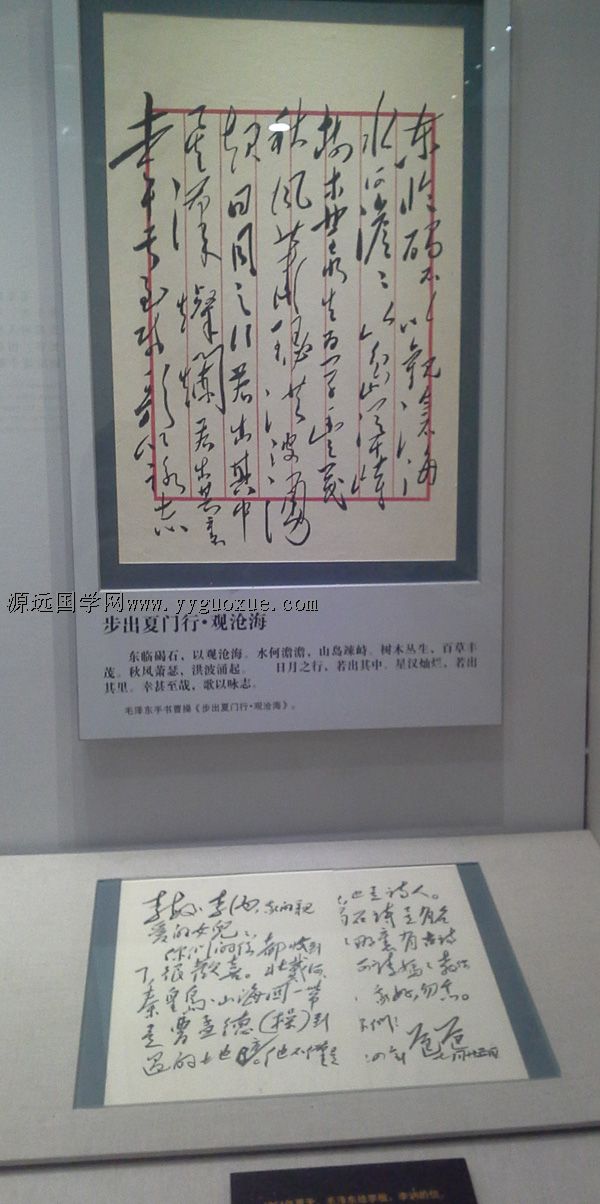 东臨碣石以觀滄海
水何澹々山島竦峙
樹木叢生百草豐茂
秋風蕭瑟洪波湧
起日月之行若出其中
星漢燦爛若出其裏
幸甚至哉歌以詠志
源远国学网www.yyguoxue.com
步出夏门行·观沧海
东临碣石，以观沧海。水何澹澹，山岛竦峙。树木丛生，百草丰
茂。秋风萧瑟，洪波涌起。 日月之行，若出其中。星汉灿烂，若出
其里。幸甚至哉，歌以咏志。
毛泽东手书曹操《步出夏门行·观沧海》。
李敏、李讷，我的親
愛的女兒：
你们的信都收到
了，很歡喜。北戴河、
秦皇島、山海関一带
是曹孟德（操）到
過的地方。他不僅是
也是诗人。
石诗是有名
有古诗
勿忘。
爸爸